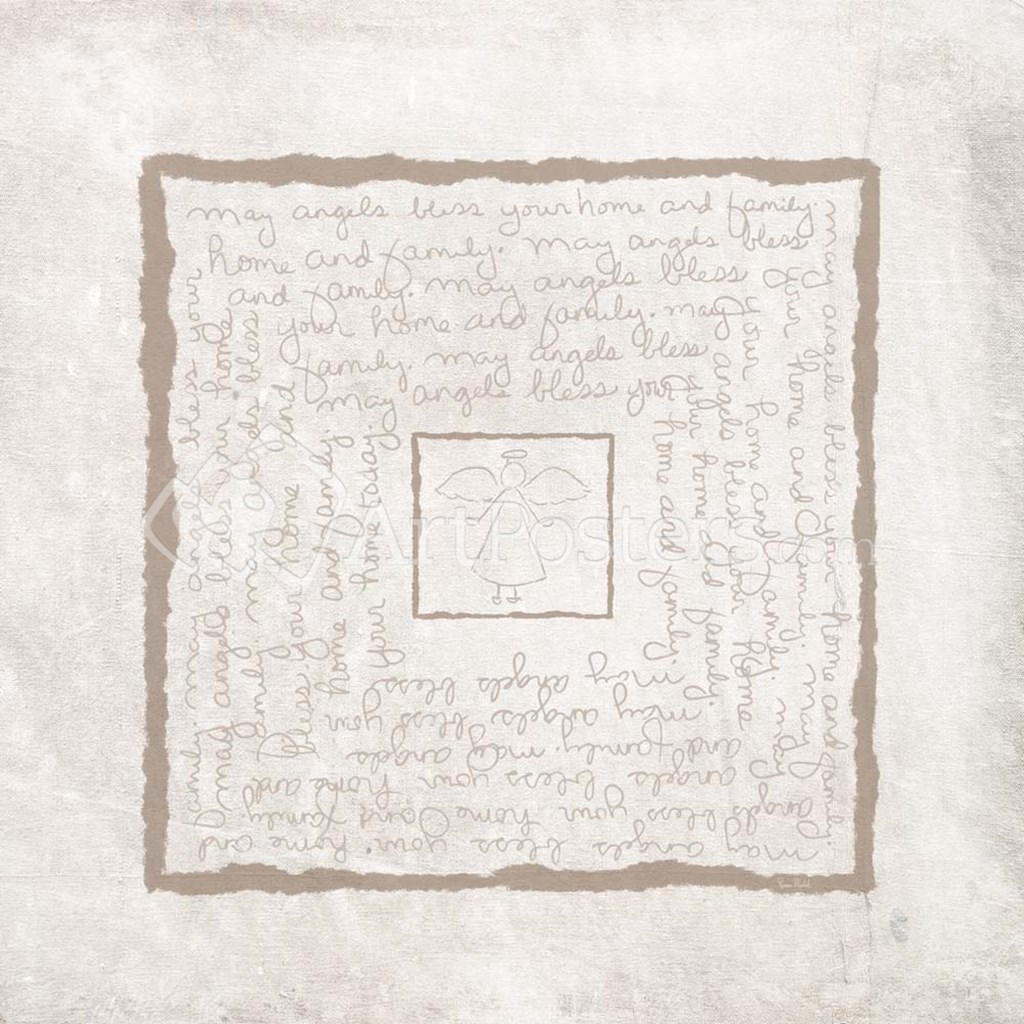 may angels bless your home and family.
home and family. may angels bless
and family. may angels bless
your home and family. may
family. may angels bless
may angels bless your
may angels bless your home and family.
your home and family. may angels bless your home and
your home and family. may
angels bless your home
your home and family.
home and family.
may angels bless
may angels bless your
and family. may angels
angels bless your home and
angels bless your home and family.
may angels bless your home and
family. may angels bless your
may angels bless your home
family. may angels bless
bless your home and
home and family.
your home today.
ArtPosters.com